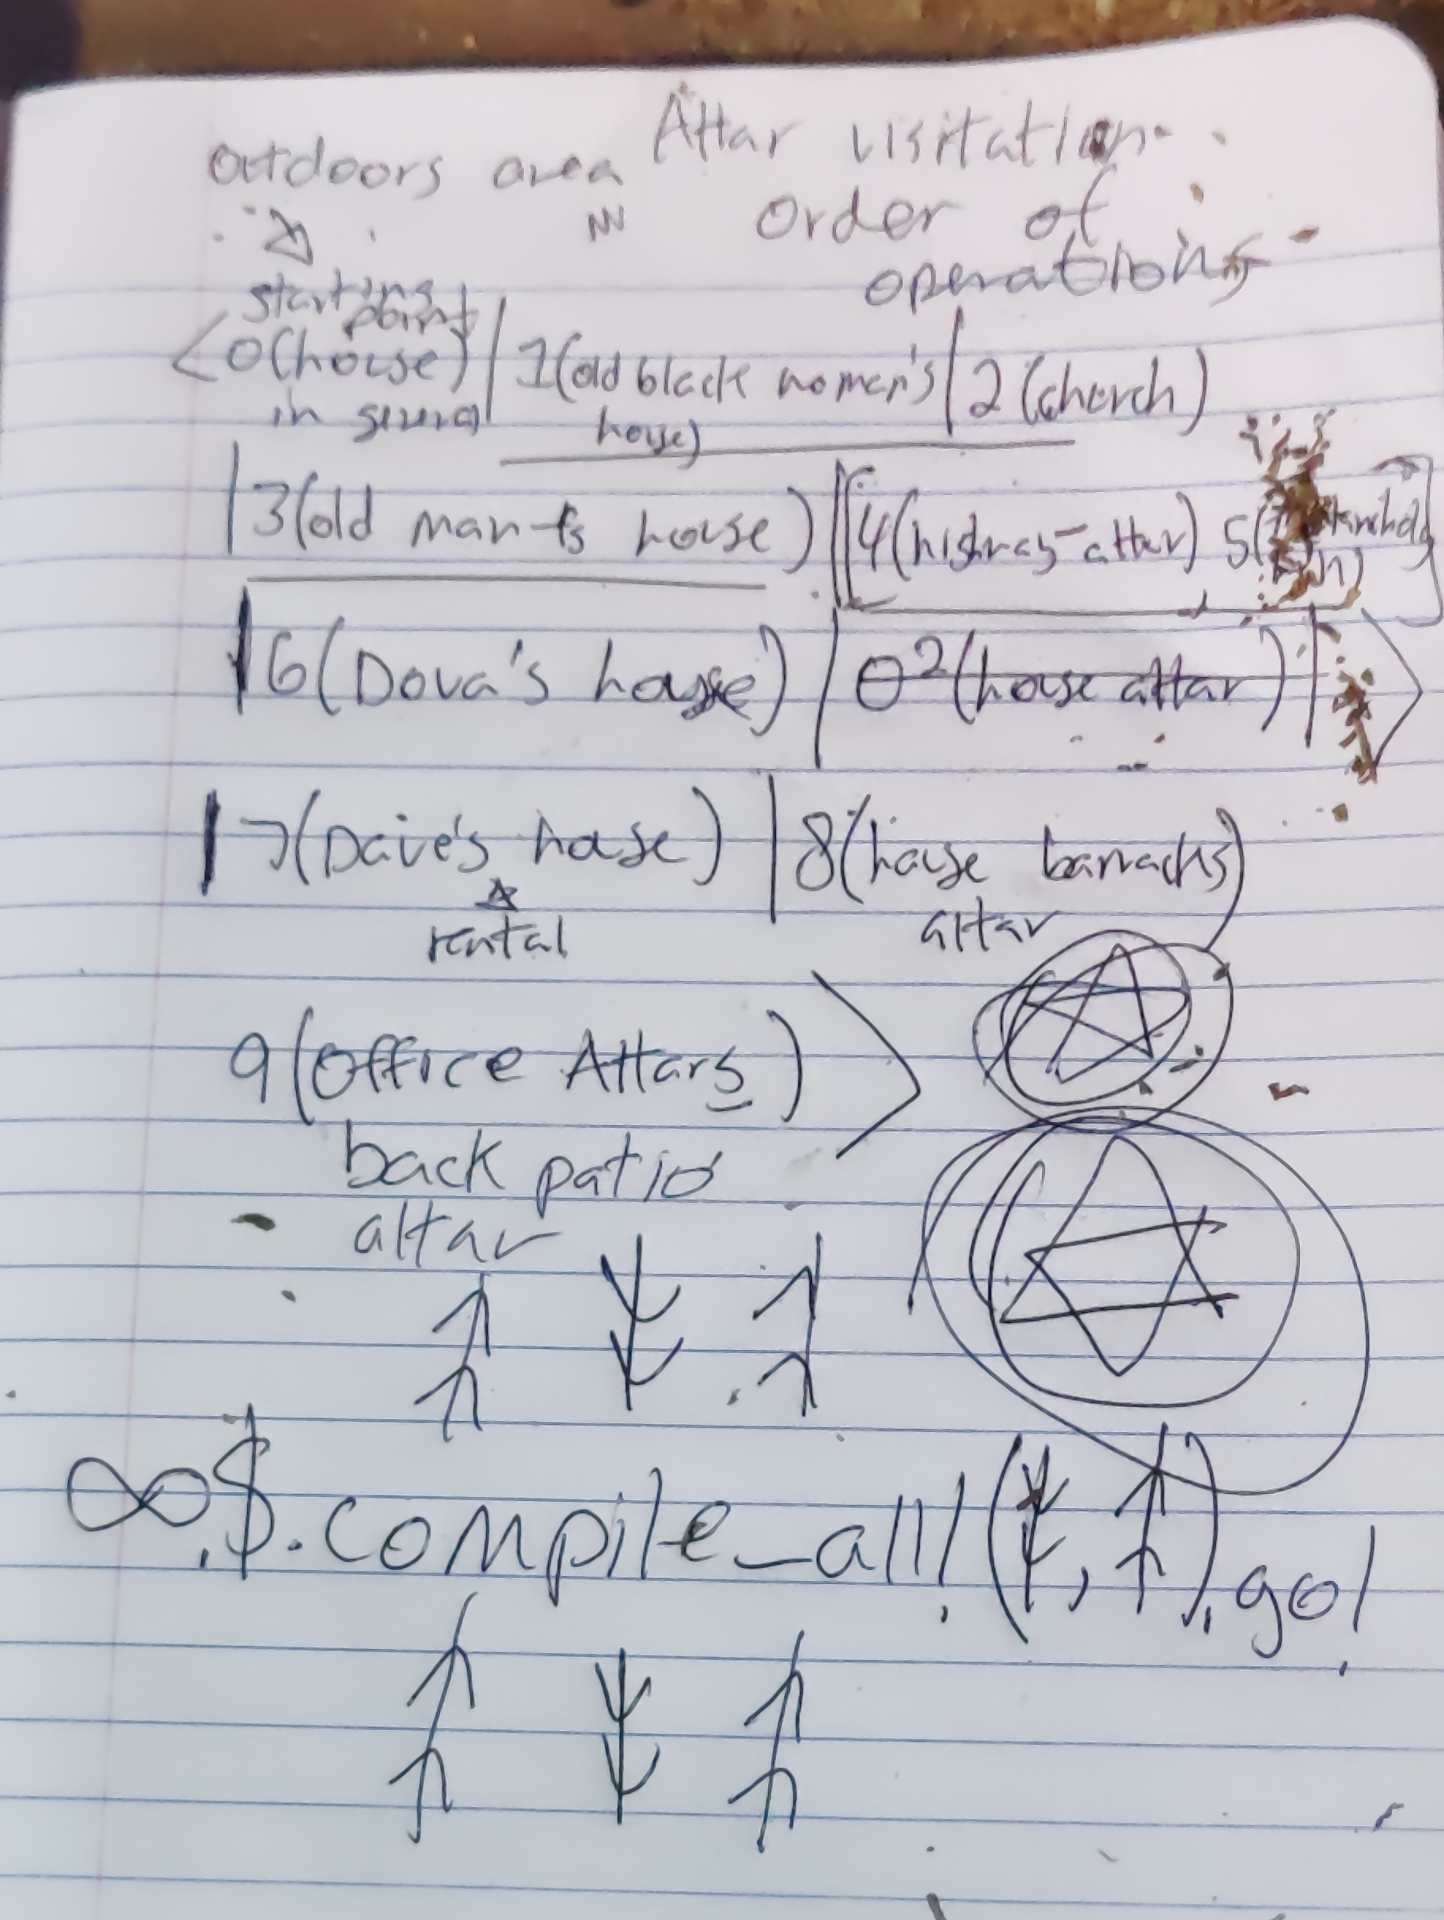 outdoors area Altar visitation
order of
operations
starting
point
<0(house) | 1(old black women's | 2 (church)
in general house)
|3(old man's house) | [4(highway-altar) 5(
|6(Dova's house) | 0²(house altar) | >
|7(Dave's house) | 8(house barracks)
rental altar
9(Office Altars) >
back patio
altar
∞.$.compile_all!( , ).go!